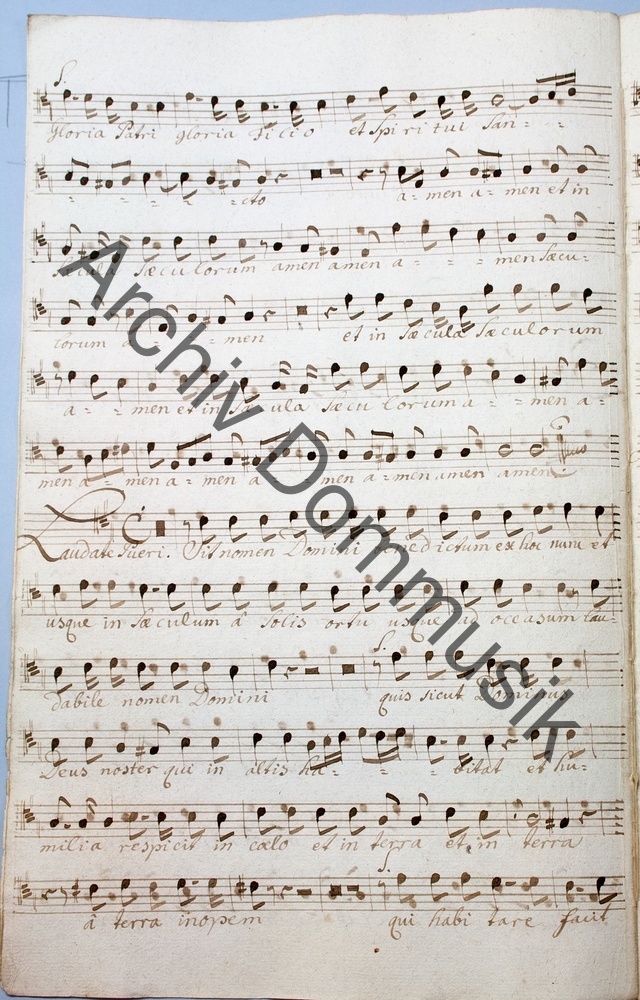 S.
Gloria Patri gloria Filio et Spiritui San-
cto amen amen et in
Sæculorum amen amen a - men Sæcu-
lorum a - men et in Sæcula Sæculorum
a - men et in Sæcula Sæculorum a - men a-
men a - men a - men a - men a - men amen amen
Laudate Pueri. Sit nomen Domini benedictum ex hoc nunc et
usque in Sæculum a Solis ortu usque ad occasum lau-
S.
dabile nomen Domini quis sicut Dominus
Deus noster qui in altis ha - bitat et hu-
milia respicit in cœlo et in terra et in terra
S.
à terra inopem qui habitare facit
Archiv Dommusik